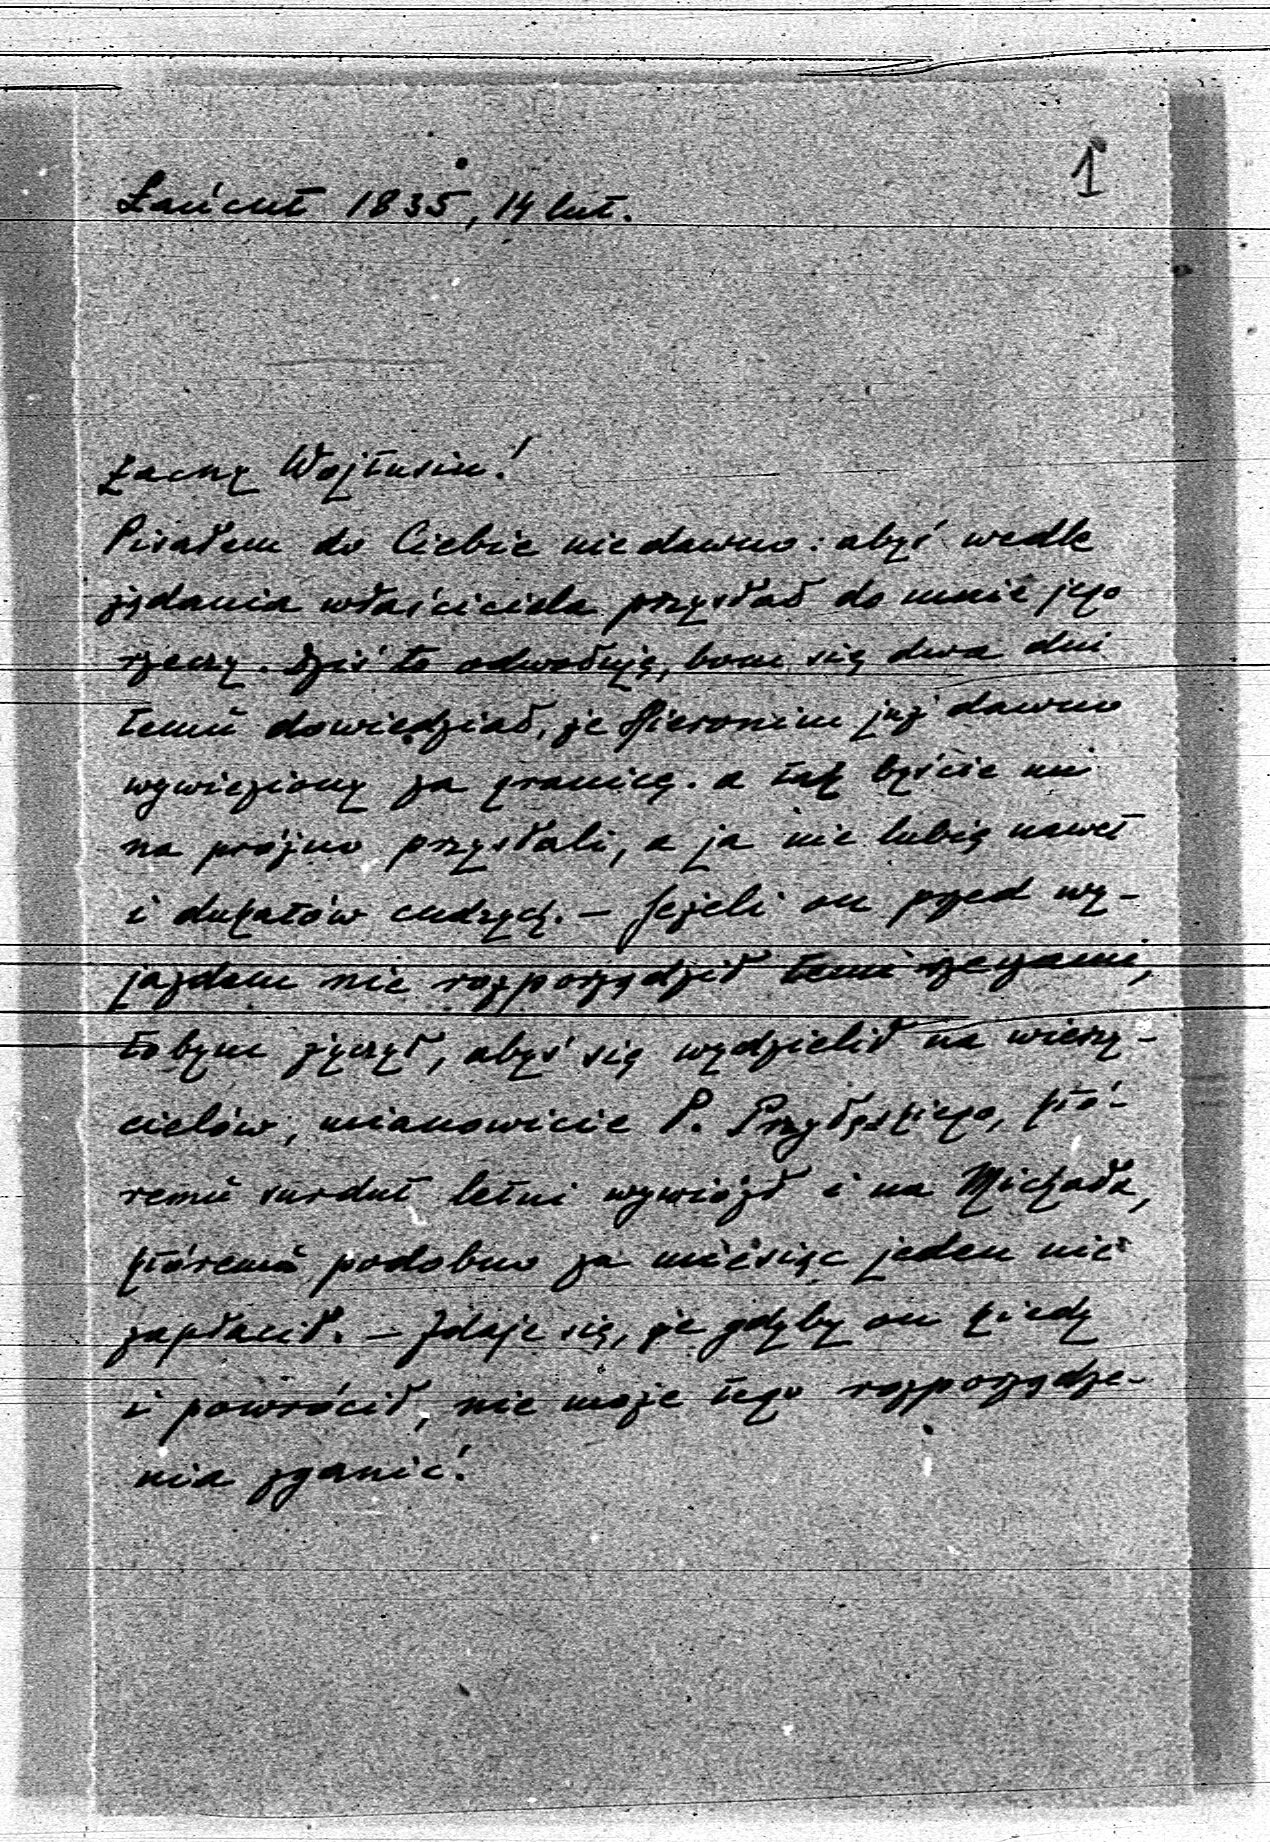 1
Łańcut 1835, 14 lut.
Zacny Wojtusiu!
Pisałem do Ciebie niedawno: abyś wedle
żądania właściciela przysłał do mnie jego
rzeczy. Dziś to odwołuję, bom się dwa dni
temu dowiedział, że Hieronim już dawno
wywieziony za granicę. a tak byście mi
na próżno przysłali, a ja nie lubię nawet
i dukatów cudzych. – Jeżeli on przed wy-
jazdem nie rozporządził temi rzeczami,
tobym życzył, abyś się wydzielił na wierzy-
cielów, mianowicie P. Przyłęskiego, któ-
remu surdut letni wywiózł i na Michała,
któremu podobno za miesiąc jeden nie
zapłacił. – Zdaje się, że gdyby on kiedy
i powrócił, nie może tego rozporządze-
nia zganić!